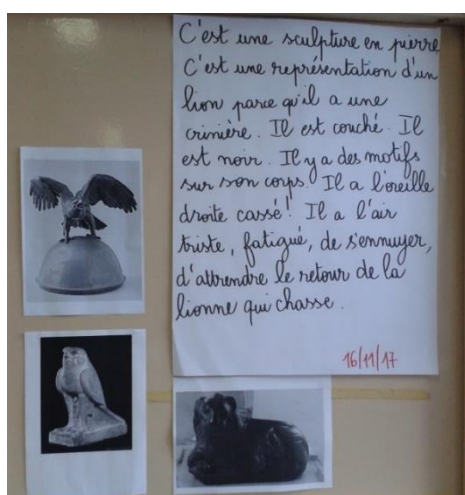 C'est une sculpture en pierre
C'est une représentation d'un
lion parce qu'il a une
crinière. Il est couché. Il
est noir. Il y a des motifs
sur son corps. Il a l'oreille
droite cassé! Il a l'air
triste, fatigué, de s'ennuyer,
d'attrendre le retour de la
lionne qui chasse.
16/11/17